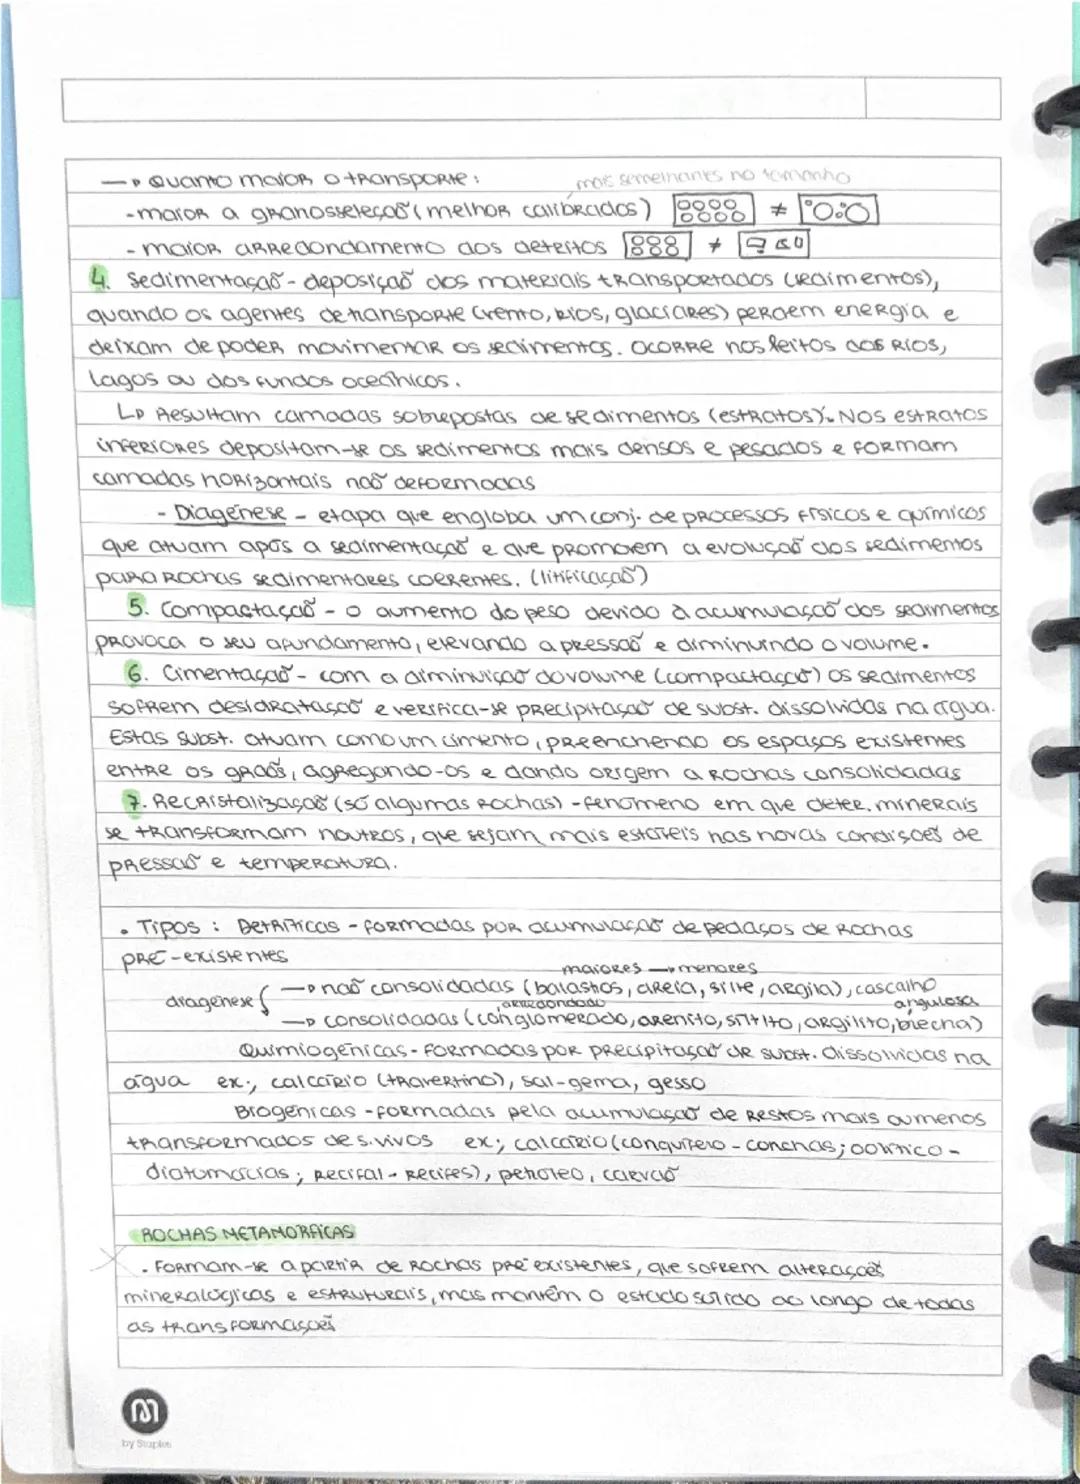 → Quanto maior o transporte:
mais semelhantes no tamanho
- maior a granosseleção (melhor calibrados) ≠
- maior arredondamento dos detritos ≠
4. Sedimentação - deposição dos materiais transportados (sedimentos),
quando os agentes de transporte (vento, rios, glaciares) perdem energia e
deixam de poder movimentar os sedimentos. Ocorre nos leitos dos rios,
lagos ou dos fundos oceânicos.
↳ Resultam camadas sobrepostas de sedimentos (estratos). Nos estratos
inferiores depositam-se os sedimentos mais densos e pesados e formam
camadas horizontais não deformadas
- Diagénese - etapa que engloba um conj. de processos físicos e químicos
que atuam após a sedimentação e que promovem a evolução dos sedimentos
para rochas sedimentares coerentes. (litificação)
5. Compactação - o aumento do peso devido à acumulação dos sedimentos
provoca o seu afundamento, elevando a pressão e diminuindo o volume.
6. Cimentação - com a diminuição do volume (compactação) os sedimentos
sofrem desidratação e verifica-se precipitação de subst. dissolvidas na água.
Estas subst. atuam como um cimento, preenchendo os espaços existentes
entre os grãos, agregando-os e dando origem a rochas consolidadas
7. Recristalização (só algumas rochas) - fenómeno em que deter. minerais
se transformam noutros, que sejam mais estáveis nas novas condições de
pressão e temperatura.
• Tipos : Detríticas - formadas por acumulação de pedaços de rochas
pré-existentes
maiores → menores
diagénese { → não consolidadas (balastros, areia, silte, argila), cascalho
arredondado angulosa
→ consolidadas (conglomerado, arenito, siltito, argilito, brecha)
Quimiogénicas - formadas por precipitação de subst. dissolvidas na
água ex:, calcário (travertino), sal-gema, gesso
Biogénicas - formadas pela acumulação de restos mais ou menos
transformados de s. vivos ex:, calcário (conquífero - conchas; oolítico -
diatomácias; recifal - recifes), petróleo, carvão
ROCHAS METAMÓRFICAS
. Formam-se a partir de rochas pré existentes, que sofrem alterações
mineralógicas e estruturais, mas mantêm o estado sólido ao longo de todas
as transformações
by Staples